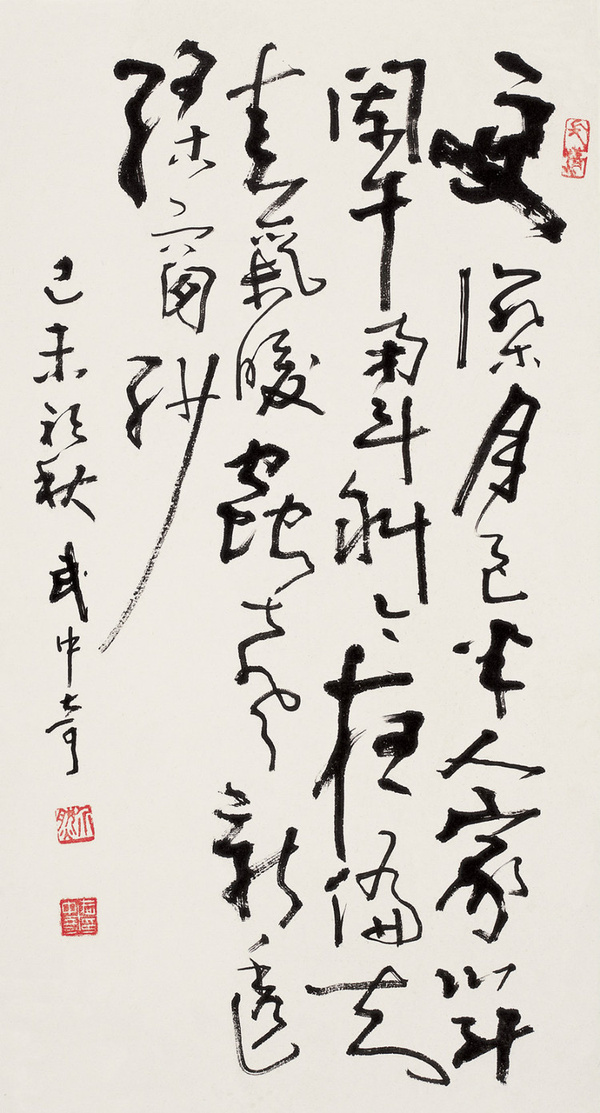 更深月色半人家北斗
闌干南斗斜今夜偏知
春氣暖蟲聲新透
綠窗紗
己未初秋 武中奇